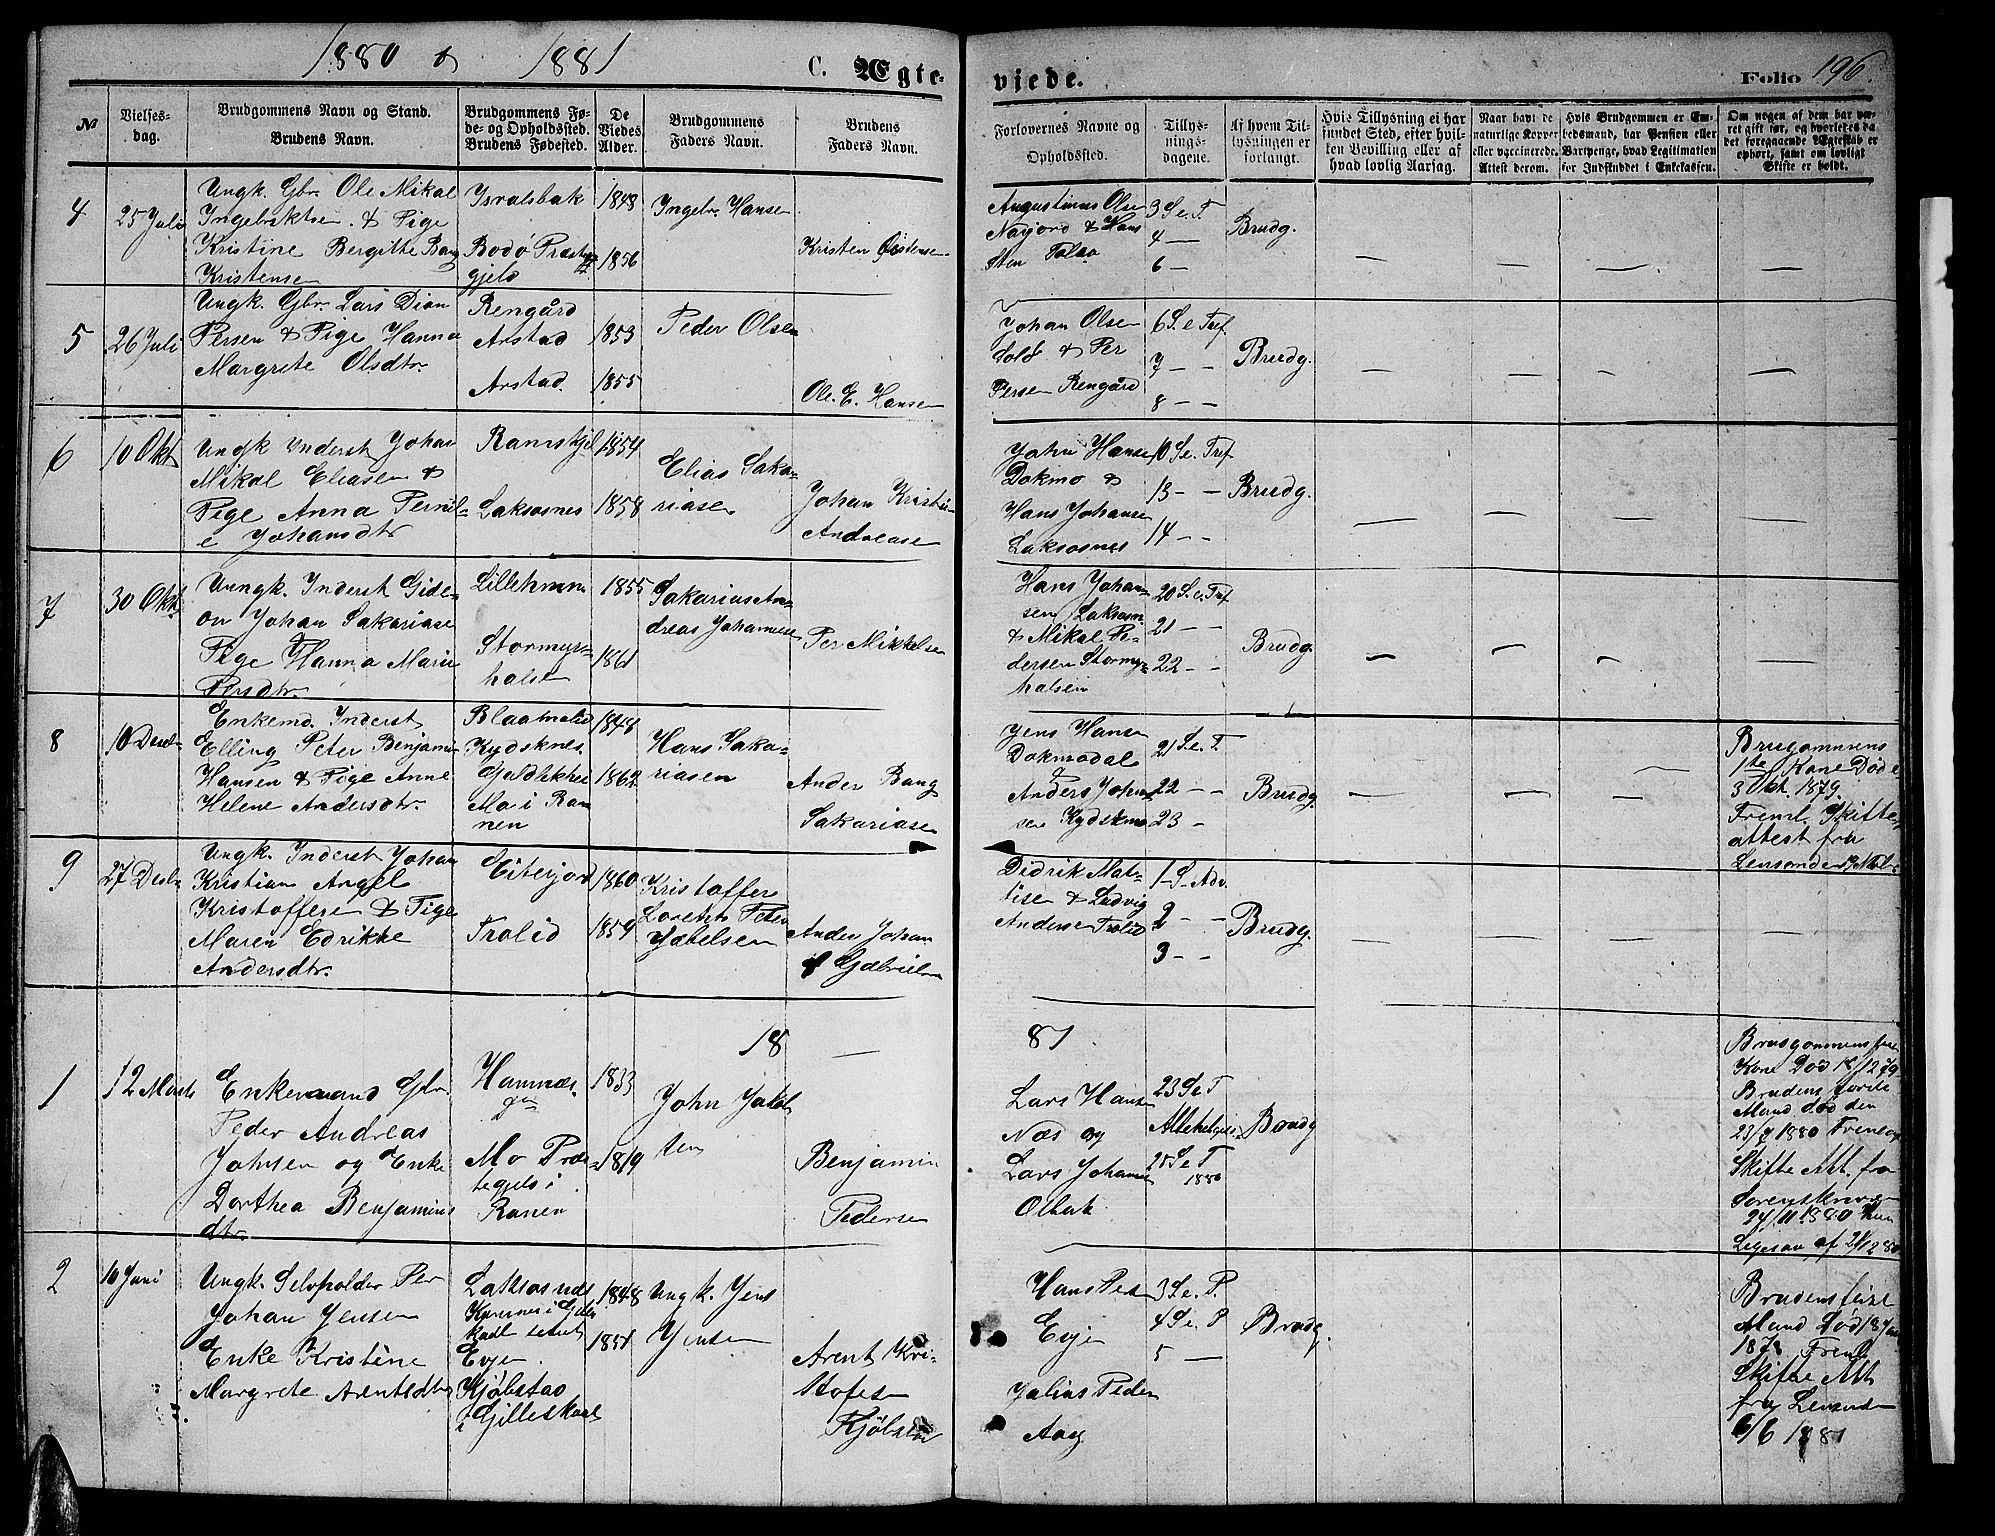 1880 & 1881
C. Ægteviede.
Folio 196.
№
Vielses-
dag.
Brudgommens Navn og Stand.
Brudens Navn.
Brudgommens Fø-
de- og Opholdssted.
Brudens Fødested.
De
Viedes
Alder.
Brudgommens
Faders Navn.
Brudens
Faders Navn.
Forlovernes Navne og
Opholdssted.
Tillys-
nings-
dagene.
Af hvem Til-
lysningen er
forlangt.
Hvis Tillysning ei har
fundet Sted, efter hvil-
ken Bevilling eller af
hvad lovlig Aarsag.
Naar havt de
naturlige Kopper
eller vaccinerede.
Attest derom.
Hvis Brudgommen er Em-
bedsmand, har Pension eller
Vartpenge, hvad Legitimation
for Indskuddet i Enkekassen.
Om nogen af dem har væ-
ret gift før, og hvorledes da
det foregaaende Ægteskab er
ophørt, samt om lovligt
Skifte er holdt.
4
25 Juli
Ungk. Gbr. Ole Mikal
Ingebriktsen & Pige
Kristine Bergitte Bang
Kristense
Isvalsbak
Bodø Præste
gjeld
1848
1856
Ingebr. Hansen
Kristen Østensen
Augustinus Olse
Navjord & Hans
Sten
3 S. e. T.
4 —
6 —
Brudg.
— — — —
5
26 Juli
Ungk. Gbr. Lars Dion
Persen & Pige Hanna
Margrete Olsdtr.
Rengård
Arstad
Arstad.
1853
1855
Peder Olsen
Ole. E. Hansen
Johan Olsen
& Per
Persen Rengård
6 S. e Tref
7 — —
8 — —
Brudg.
— — — —
6
10 Okt
Ungk Inderst Johan
Mikal Eliasen &
Pige Anna Pernil-
e Johansdtr
Ramskjel
Laksosnes
1854
1858
Elias Saka-
riasen
Johan Kristi-
Andrease
John Hanse
Dokmo &
Hans Johanse
Laksosnes
10 S. e. Tref
13 — —
14 — —
Brudg.
— — — —
7
30 Okt.
Unngk. Inderst Gide-
on Johan Sakariase
Pige Hanna Marie
Persdtr.
Lillehmm
Stormyr-
halse
1855
1861
Sakarias An-
dreas Johannese
Per Mikkelse
Hans Johan-
sen Laksosn
& Mikal Pe-
dersen Stormyr
halsen
20 S. e. Tref
21 — —
22 — —
Brudg
— — — —
8
10 Desbr
Enkemd. Inderst
Elling Peter Benjami-
Hansen & Pige Anne
Helene Andersdtr.
Blaatmolid
Kydsknes.
Mo i Ra
nen
1848
1862
Hans Saka-
riasen
Ander Bang
Sakariasen
Jens Hansn
Dokmodal
&
Anders Johan
sen Kydskmo
21 S. e. T.
22 — —
23 —
Brudg
— — —
Brugommens
1te Kone Død e
3 Okt. 1879.
Freml. Skifte
attest fra
9
27 Desbr
Ungk. Inderst Johan
Kristian Angel
Kristoffersen & Pige
Maren Edrikke
Andersdtr.
Eiterjord
Trolid
1860
1859
Kristoffer
Lorents Peter
Ander Johan
Gabriels
Didrik Mat-
tisen & Ludvig
Anderse Trolid
1 S. Adv.
2 — —
3 — —
Brudg.
— — — —
18 — 81
1
12 Marts
Enkemand Gbr.
Peder Andreas
Johnsen og Enke
Dorthea Benjamins
dtr.
Mo Præs-
tegjeld i
Ranen
1833
1819
John
Benjamin
Pedersen
Lars Hansen
Næs og
Lars Johanse
23 S e T
25 S e T
1880
Brudg
Brudgommens
Kone Død 12/12 79
Brudens første
Mand død den
23/7 1880 Fremlagt
Skifte Att. fra
Sorenskriver
24/11 1880
2
10 Juni
Ungk. Selvholder Per
Johan Jensen
Enke Kristine
Margrete Arentsdtr
Laksosnes
Evje
Kjøbstad
i Gilleskaal
1848
1851
Ungk. Jens
Jensen
Arent Kri-
stofes
Kjøbstad
Hans Peder
Evje
Julius Peder
Aag
3 S. e. P.
4 S. e. P
5 —
Brudg.
Brudens første
Mand Død 18
Freml.
Skifte Att
fra
6/6 1881